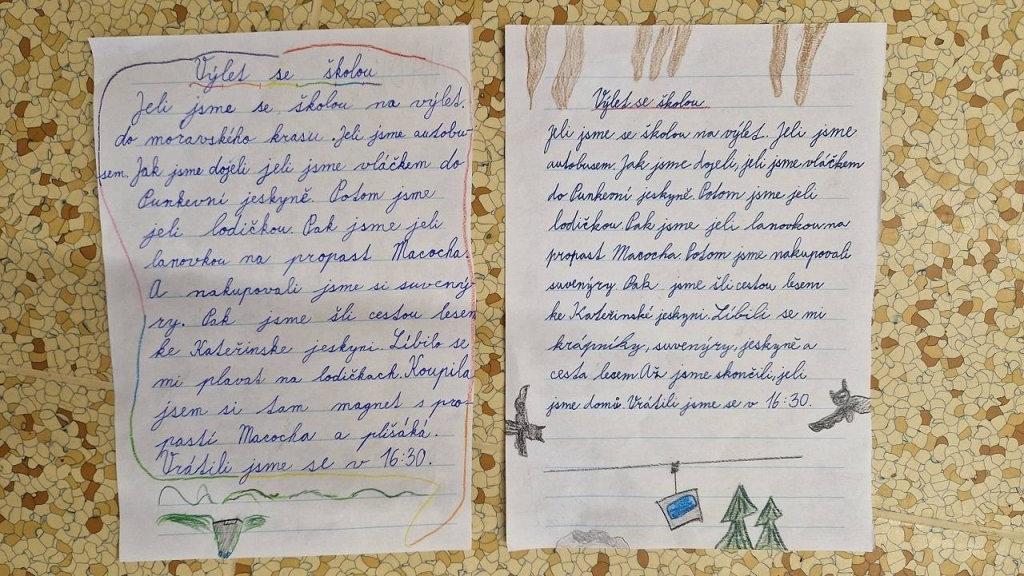 Výlet se školou
Jeli jsme se školou na výlet.
do moravského krasu. Jeli jsme autobu-
sem. Jak jsme dojeli jeli jsme vláčkem do
Punkevní jeskyně. Potom jsme
jeli lodičkou. Pak jsme jeli
lanovkou na propast Macocha.
A nakupovali jsme si suvený-
ry. Pak jsme šli cestou lesem
ke Kateřinske jeskyni. Líbilo se
mi plavat na lodičkach. Koupila
jsem si tam magnet s pro-
pastí Macocha a plišáká.
Vrátili jsme se v 16:30.
Výlet se školou
Jeli jsme se školou na výlet. Jeli jsme
autobusem. Jak jsme dojeli, jeli jsme vláčkem
do Punkevní jeskyně. Potom jsme jeli
lodičkou. Pak jsme jeli lanovkou na
propast Macocha. Potom jsme nakupovali
suvenýry. Pak jsme šli cestou lesem
ke Kateřinské jeskyni. Líbili se mi
krápníky, suvenýry, jeskyně a
cesta lesem. Až jsme skončili, jeli
jsme domů. Vrátili jsme se v 16:30.